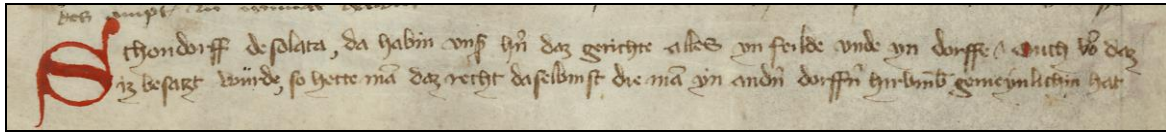 des ampt zu
Schondorff desolata, da habin unß h̄n daz gerichte alles yn felde unde yn dorffe, Ouch wo daz
iz besatzt wurde, so hette mā daz recht daselbinst die mā yn andn̄ dorffn̄ hirumb gemeynlichin hat